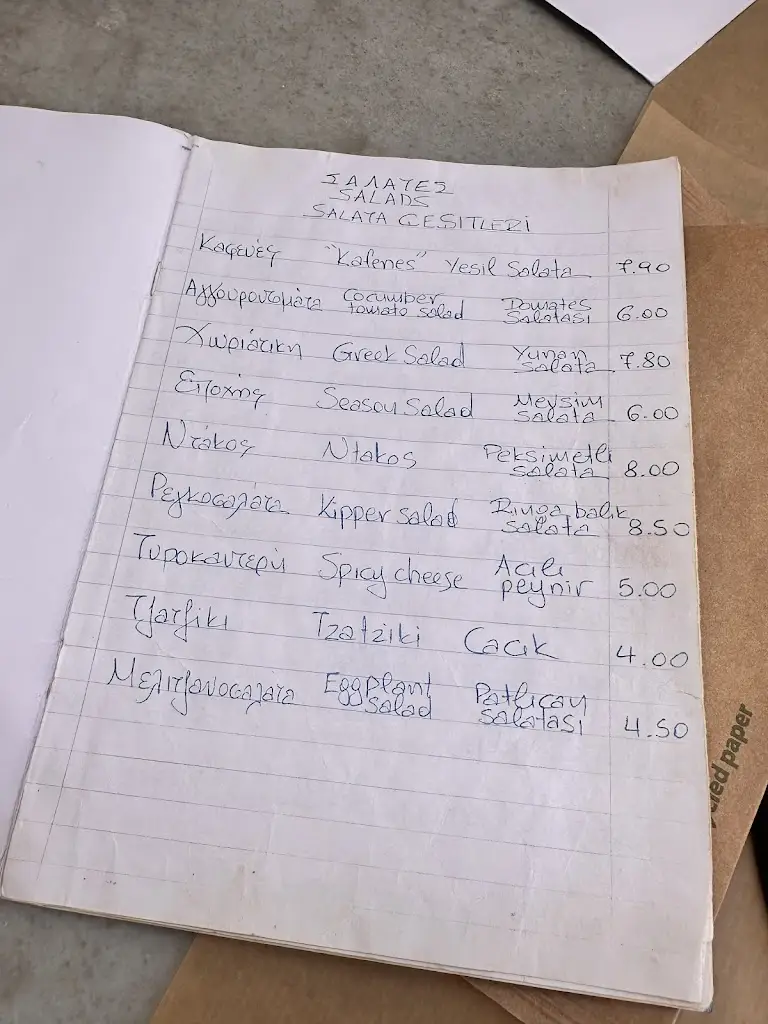 ΣΑΛΑΤΕΣ
SALADS
SALATA CESITLERİ
Καφενές "Kafenes" Yesil Salata 7.90
Αγγουροντομάτα Cocumber tomato salad Domates Salatasi 6.00
Χωριάτικη Greek Salad Yunan salata 7.80
Εποχής Season Salad Mevsim salata 6.00
Ντάκος Ntakos Peksimetli salata 8.00
Ρεγκοσαλάτα Kipper salad Ringa balik salata 8.50
Τυροκαυτερή Spicy cheese Acili peynir 5.00
Τζατζίκι Tzatziki Cacik 4.00
Μελιτζανοσαλάτα Eggplant salad Patlican salatasi 4.50
cled paper